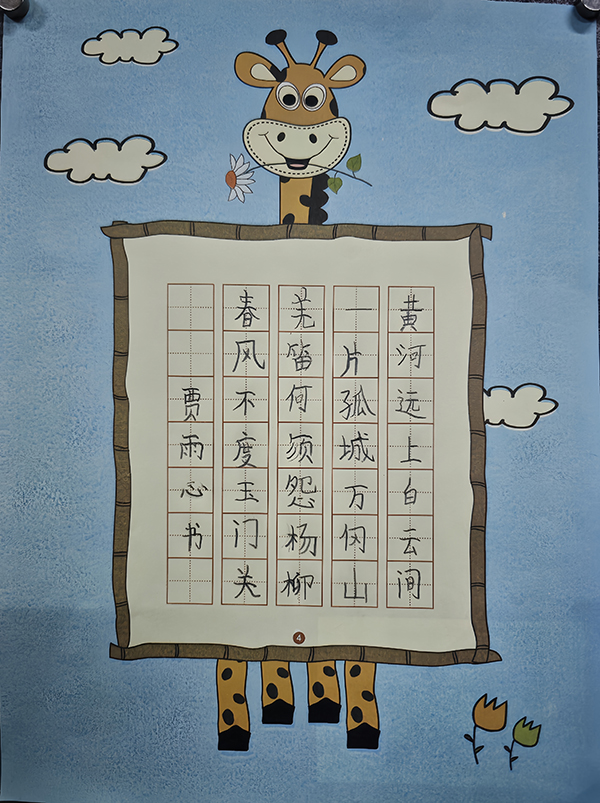 黄河远上白云间
一片孤城万仞山
羌笛何须怨杨柳
春风不度玉门关
贾雨心书
4